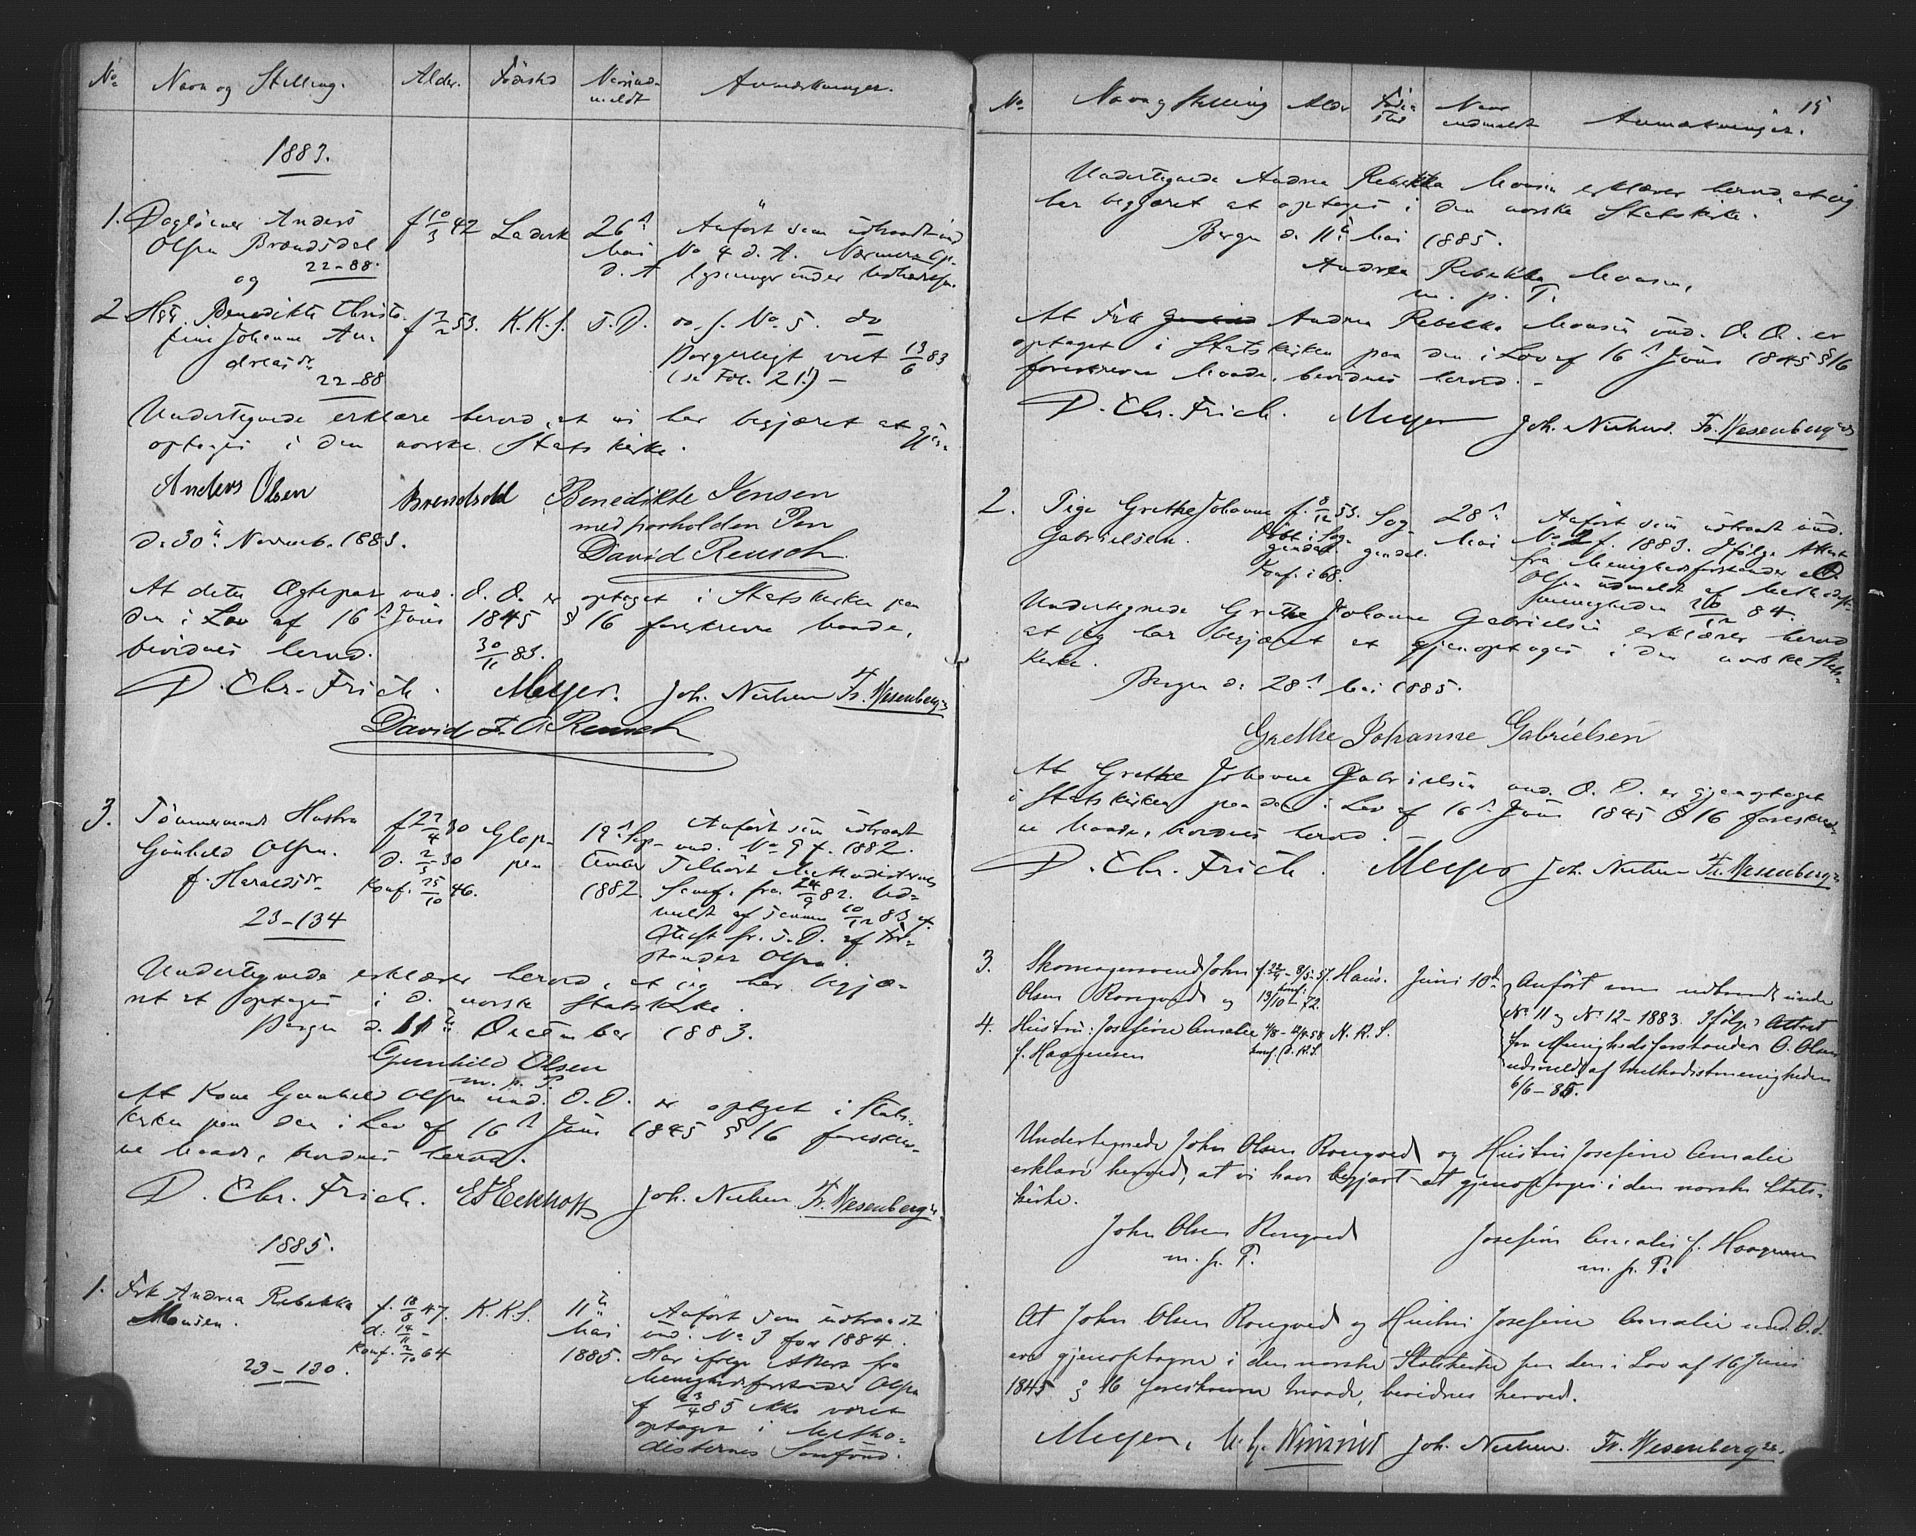 No Navn og Stilling. Alder. Fødested Naar ind-meldt Anmærkninger.
1883.
1. Dagløner Anders f 10/3 42 Laderk 26de Anført som udtraadt und
Olsen Brændsdal Mai No 4 d. A. Nærmere Op-
22-88. d. A lysninger under
og
2 Hst. Benedikte Christ- f 2/2 53. K.K.S. s. D. do. s. No 5. do
fine Johanne An- Borgerligt viet 13/6 83
dreasdr (se Fol. 21.) —
22-88
Undertegnede erklære herved, at vi har begjæret at gjen-
optages i den norske Statskirke.
Anders Olsen Brendsdal Benedikte Jensen
med paaholden Pen
d. 30te Novemb. 1883. David Rensch
At dette Ægtepar und. d. D. er optaget i Statskirken paa
den i Lov af 16de Juni 1845 § 16 foreskrevne Maade,
bevidnes herved. 30/11 83.
D. Chr. Frich. Meyer. Joh. Nielsen Fr. Wesenberg
David F. A Rensch
3. Tømmermands Hustru f 22/4 30 Glop- 19de Sep- Anført som udtraadt
Gunhild Olsen. d. 2/5 30 pen tember und. No 9 f. 1882.
f. Haraldsdr Konf. 25/10 46. 1882 Tilhørt Methodisternes
23-134 Samf. fra 24/9 82. Ud-
meldt af samme 10/12 83 if.
Attest fr. s. D. af For-
stander Olsen.
Undertegnede erklærer herved, at jeg har begjæ-
ret at optages i d. norske Statskirke.
Bergen d. 11te December 1883.
Gunhild Olsen
m. p. P.
At Kone Gunhild Olsen und. D. D. er optaget i Stats-
kirken paa den i Lov af 16de Juni 1845 § 16 foreskrev-
ne Maade, bevidnes herved.
D. Chr. Frich. Eckhoff Joh. Nielsen Fr. Wesenberg
1885.
1. Frk Andrea Rebekka f. 18/8 47. K.K.S. 11te Anført som udtraadt
Monsen. d. 14/11 – Mai und. No 3 for 1884.
Konf. 2/10 64 1885. Har ifølge Attest fra
23-130. Menighedsforstander Olsen
f 23/4 85 ikke været
optaget i Metho-
disternes Samfund.
15
No. Navn og Stilling Alder Føde-sted Naar indmeldt Anmærkninger.
Undertegnede Andrea Rebekka Monsen erklærer herved, at jeg
har begjæret at optages i den norske Statskirke.
Bergen d. 11te Mai 1885.
Andrea Rebekka Monsen.
m. p. P.
At Frk Andrea Rebekka Monsen und. D. D. er
optaget i Statskirken paa den i Lov af 16de Juni 1845 § 16
foreskrevne Maade, bevidnes herved. –
D. Chr. Frich. Meyer Joh. Nielsen. Fr. Wesenberg
2. Pige Grethe Johanne f. 8/12 53. Sog- 28de Anført som udtraadt und.
Gabrielsen. Døbt i Sog- gendal. Mai No 2 f. 1883. Ifølge Attest
gendal. fra Menighedsforstander
Konf. i 68. Olsen udmeldt af Methodist-
menigheden 84.
Undertegnede Grethe Johanne Gabrielsen erklærer herved
at jeg har begjæret at gjenoptages i den norske Stats-
kirke.
Bergen d. 28de Mai 1885.
Grethe Johanne Gabrielsen
At Grethe Johanne Gabrielsen und. D. D. er gjenoptaget
i Statskirken paa den i Lov af 16de Juni 1845 § 16 foreskrev-
ne Maade, bevidnes herved. –
D. Chr. Frich. Meyer Joh. Nielsen Fr. Wesenberg
3. Skomagersvend John f. 22/4 – 8/5 – 57. Haus. Juni 10de Anført som udtraadt under
Olsen Rongved og Konf. 13/10 – 72. No 11 og No 12 – 1883. Ifølge Attest
4. Hustru: Josefine Amalie 4/8 – 12/9 58 N.K.S. fra Menighedsforstander O. Olsen
f. Haagensen Konf. udmeldt af Methodistmenigheden
6/6 – 85.
Undertegnede John Olsen Rongved og Hustru Josefine Amalie
erklære herved, at vi have begjært at gjenoptages i den norske Stats-
kirke.
John Olsen Rongved Josefine Amalie f. Haagensen
m. p. P. m. p. P.
At John Olsen Rongved og Hustru Josefine Amalie und. D. d.
ere gjenoptagne i den norske Statskirke paa den i Lov af 16 Juni
1845 § 16 foreskrevne Maade, bevidnes herved.
Meyer, Joh. Nielsen. Fr. Wesenberg